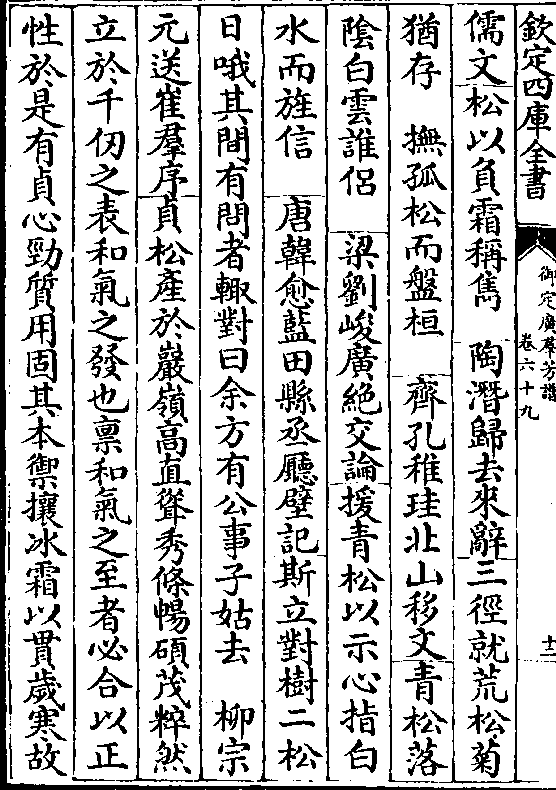 欽定四庫全書
御定廣羣芳譜
卷六十九
十二
儒文松以負霜稱雋　陶潛歸去來辭三徑就荒松菊
猶存　撫孤松而盤桓　齊孔稚珪北山移文青松落
陰白雲誰侶　梁劉峻廣絶交論援青松以示心指白
水而旌信　唐韓愈藍田縣丞廳壁記斯立對樹二松
日哦其間有問者輙對曰余方有公事子姑去　柳宗
元送崔羣序貞松產於巖嶺高直聳秀條暢碩茂粹然
立於千仞之表和氣之發也禀和氣之至者必合以正
性於是有貞心勁質用固其本禦攘冰霜以貫歲寒故